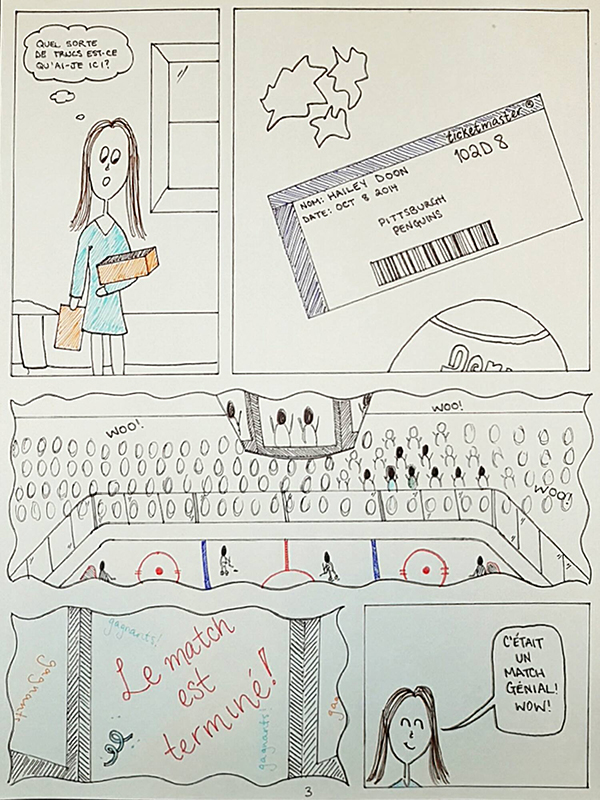 QUEL SORTE
DE TRUCS EST-CE
QU'AI-JE ICI?
ticketmaster®
102D8
NOM: HAILEY DOON
DATE: OCT 8 2014
PITTSBURGH
PENGUINS
WOO!
WOO!
WOO!
gagnant
gagnants!
Le match
est
terminé!
gagnants!
ga
C'ÉTAIT
UN
MATCH
GÉNIAL!
WOW!
3